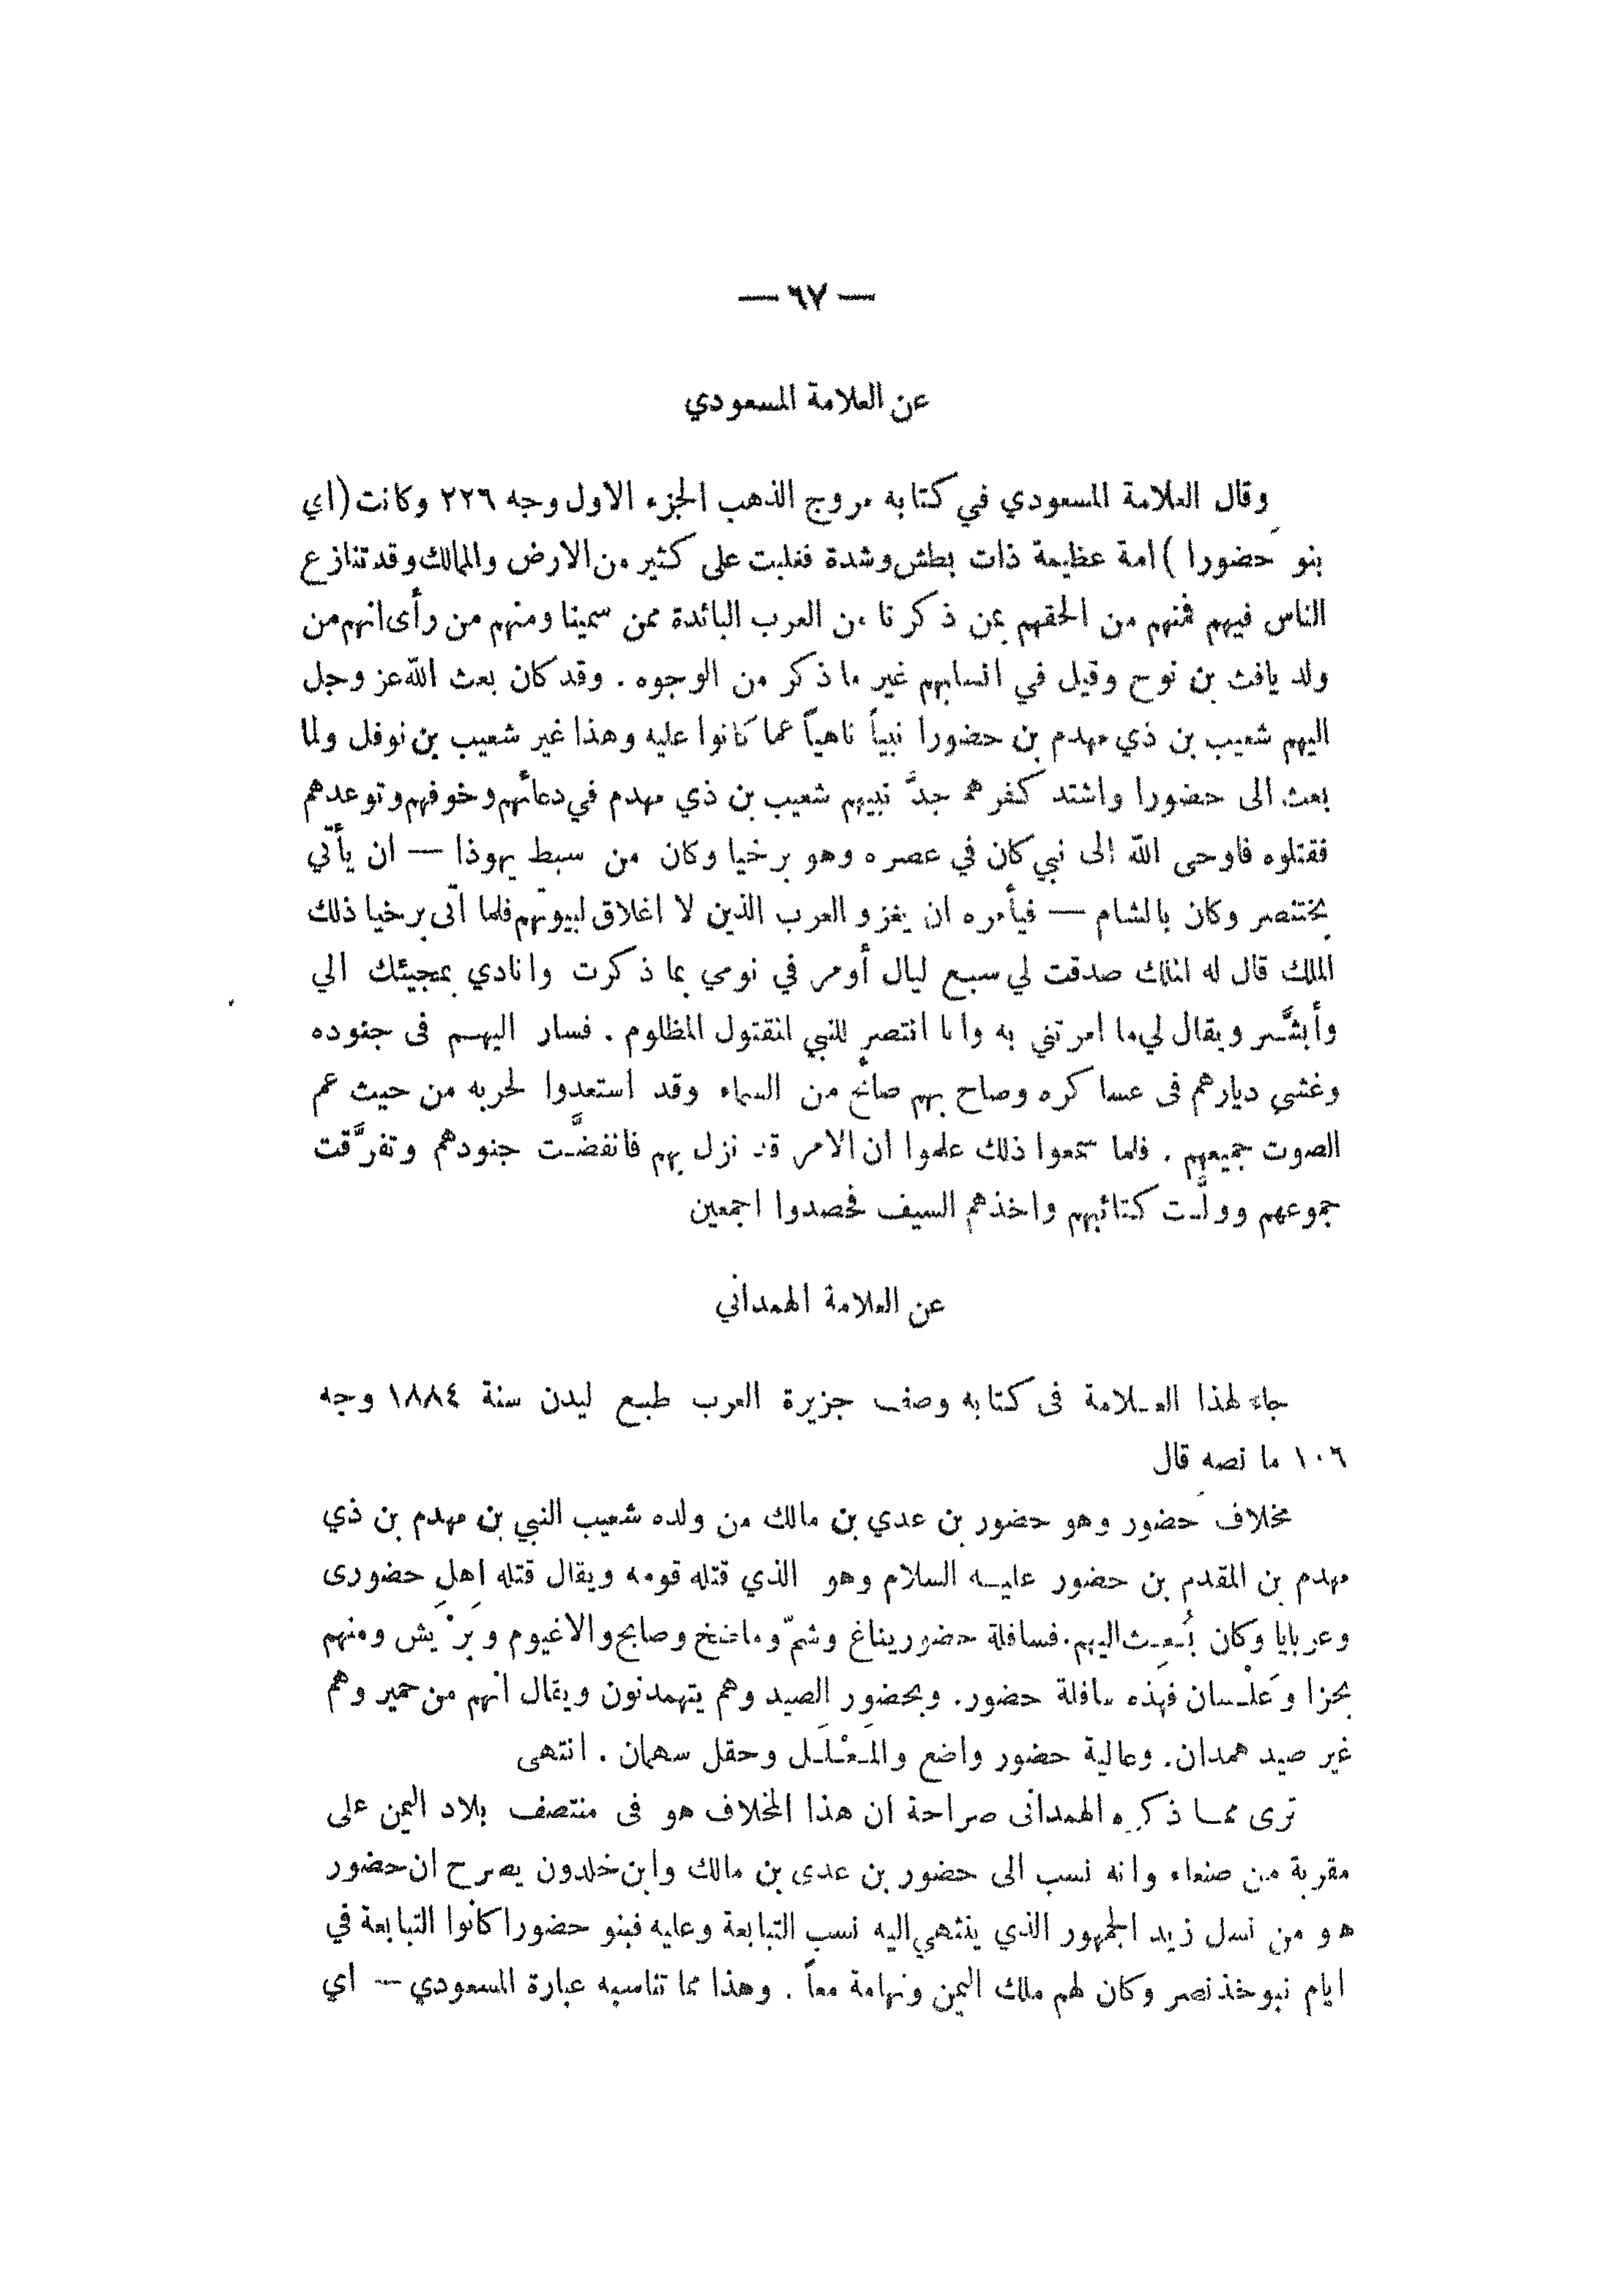 — ٦٧ —
عن العلامة المسعودي
وقال العلامة المسعودي في كتابه مروج الذهب الجزء الاول وجه ٢٢٦ وكانت (اي
بنو حَضورا) امة عظيمة ذات بطش وشدة فغلبت على كثير من الارض والممالك وقد تنازع
الناس فيهم فمنهم من الحقهم بمن ذكرنا من العرب البائدة ممن سمينا ومنهم من رأى انهم من
ولد يافث بن نوح وقيل في انسابهم غير ما ذكر من الوجوه . وقد كان بعث الله عز وجل
اليهم شعيب بن ذي مهدم بن حضورا نبياً ناهياً عما كانوا عليه وهذا غير شعيب بن نوفل ولما
بعث الى حضورا واشتد كفرهم جدَّ نبيهم شعيب بن ذي مهدم في دعائهم وخوفهم وتوعدهم
فقتلوه فاوحى الله الى نبي كان في عصره وهو برخيا وكان من سبط يهوذا — ان يأتي
بختنصر وكان بالشام — فيأمره ان يغزو العرب الذين لا اغلاق لبيوتهم فلما اتى برخيا ذلك
الملك قال له الملك صدقت لي سبع ليال أومر في نومي بما ذكرت وانادي بمجيئك الي
وأبشَّر ويقال لي ما امرتني به وانا انتصر للنبي المقتول المظلوم . فسار اليهم فى جنوده
وغشي ديارهم فى عساكره وصاح بهم صائح من السماء وقد استعدوا لحربه من حيث عم
الصوت جميعهم . فلما سمعوا ذلك علموا ان الامر قد نزل بهم فانفضَّت جنودهم وتفرَّقت
جموعهم وولَّت كتائبهم واخذهم السيف فحصدوا اجمعين
عن العلامة الهمداني
جاء لهذا العلامة فى كتابه وصف جزيرة العرب طبع ليدن سنة ١٨٨٤ وجه
١٠٦ ما نصه قال
مخلاف حَضور وهو حضور بن عدي بن مالك من ولده شعيب النبي بن مهدم بن ذي
مهدم بن المقدم بن حضور عليه السلام وهو الذي قتله قومه ويقال قتله اهل حضورى
وعربايا وكان بُعِث اليهم. فسافلة حضور يناغ وشمّ وماضخ وصابح والاغيوم وبَرْيش ومنهم
بحزا وعَلْسان فهذه سافلة حضور. وبحضور الصيد وهم يتهمدنون ويقال انهم من حمير وهم
غير صيد همدان. وعالية حضور واضع والمَعْلَل وحقل سهمان . انتهى
ترى مما ذكره الهمدانى صراحة ان هذا المخلاف هو فى منتصف بلاد اليمن على
مقربة من صنعاء وانه نسب الى حضور بن عدى بن مالك وابن خلدون يصرح ان حضور
هو من نسل زيد الجمهور الذي ينتهي اليه نسب التبابعة وعليه فبنو حضورا كانوا التبابعة في
ايام نبوخذنصر وكان لهم ملك اليمن وتهامة معاً . وهذا مما تناسبه عبارة المسعودي — اي